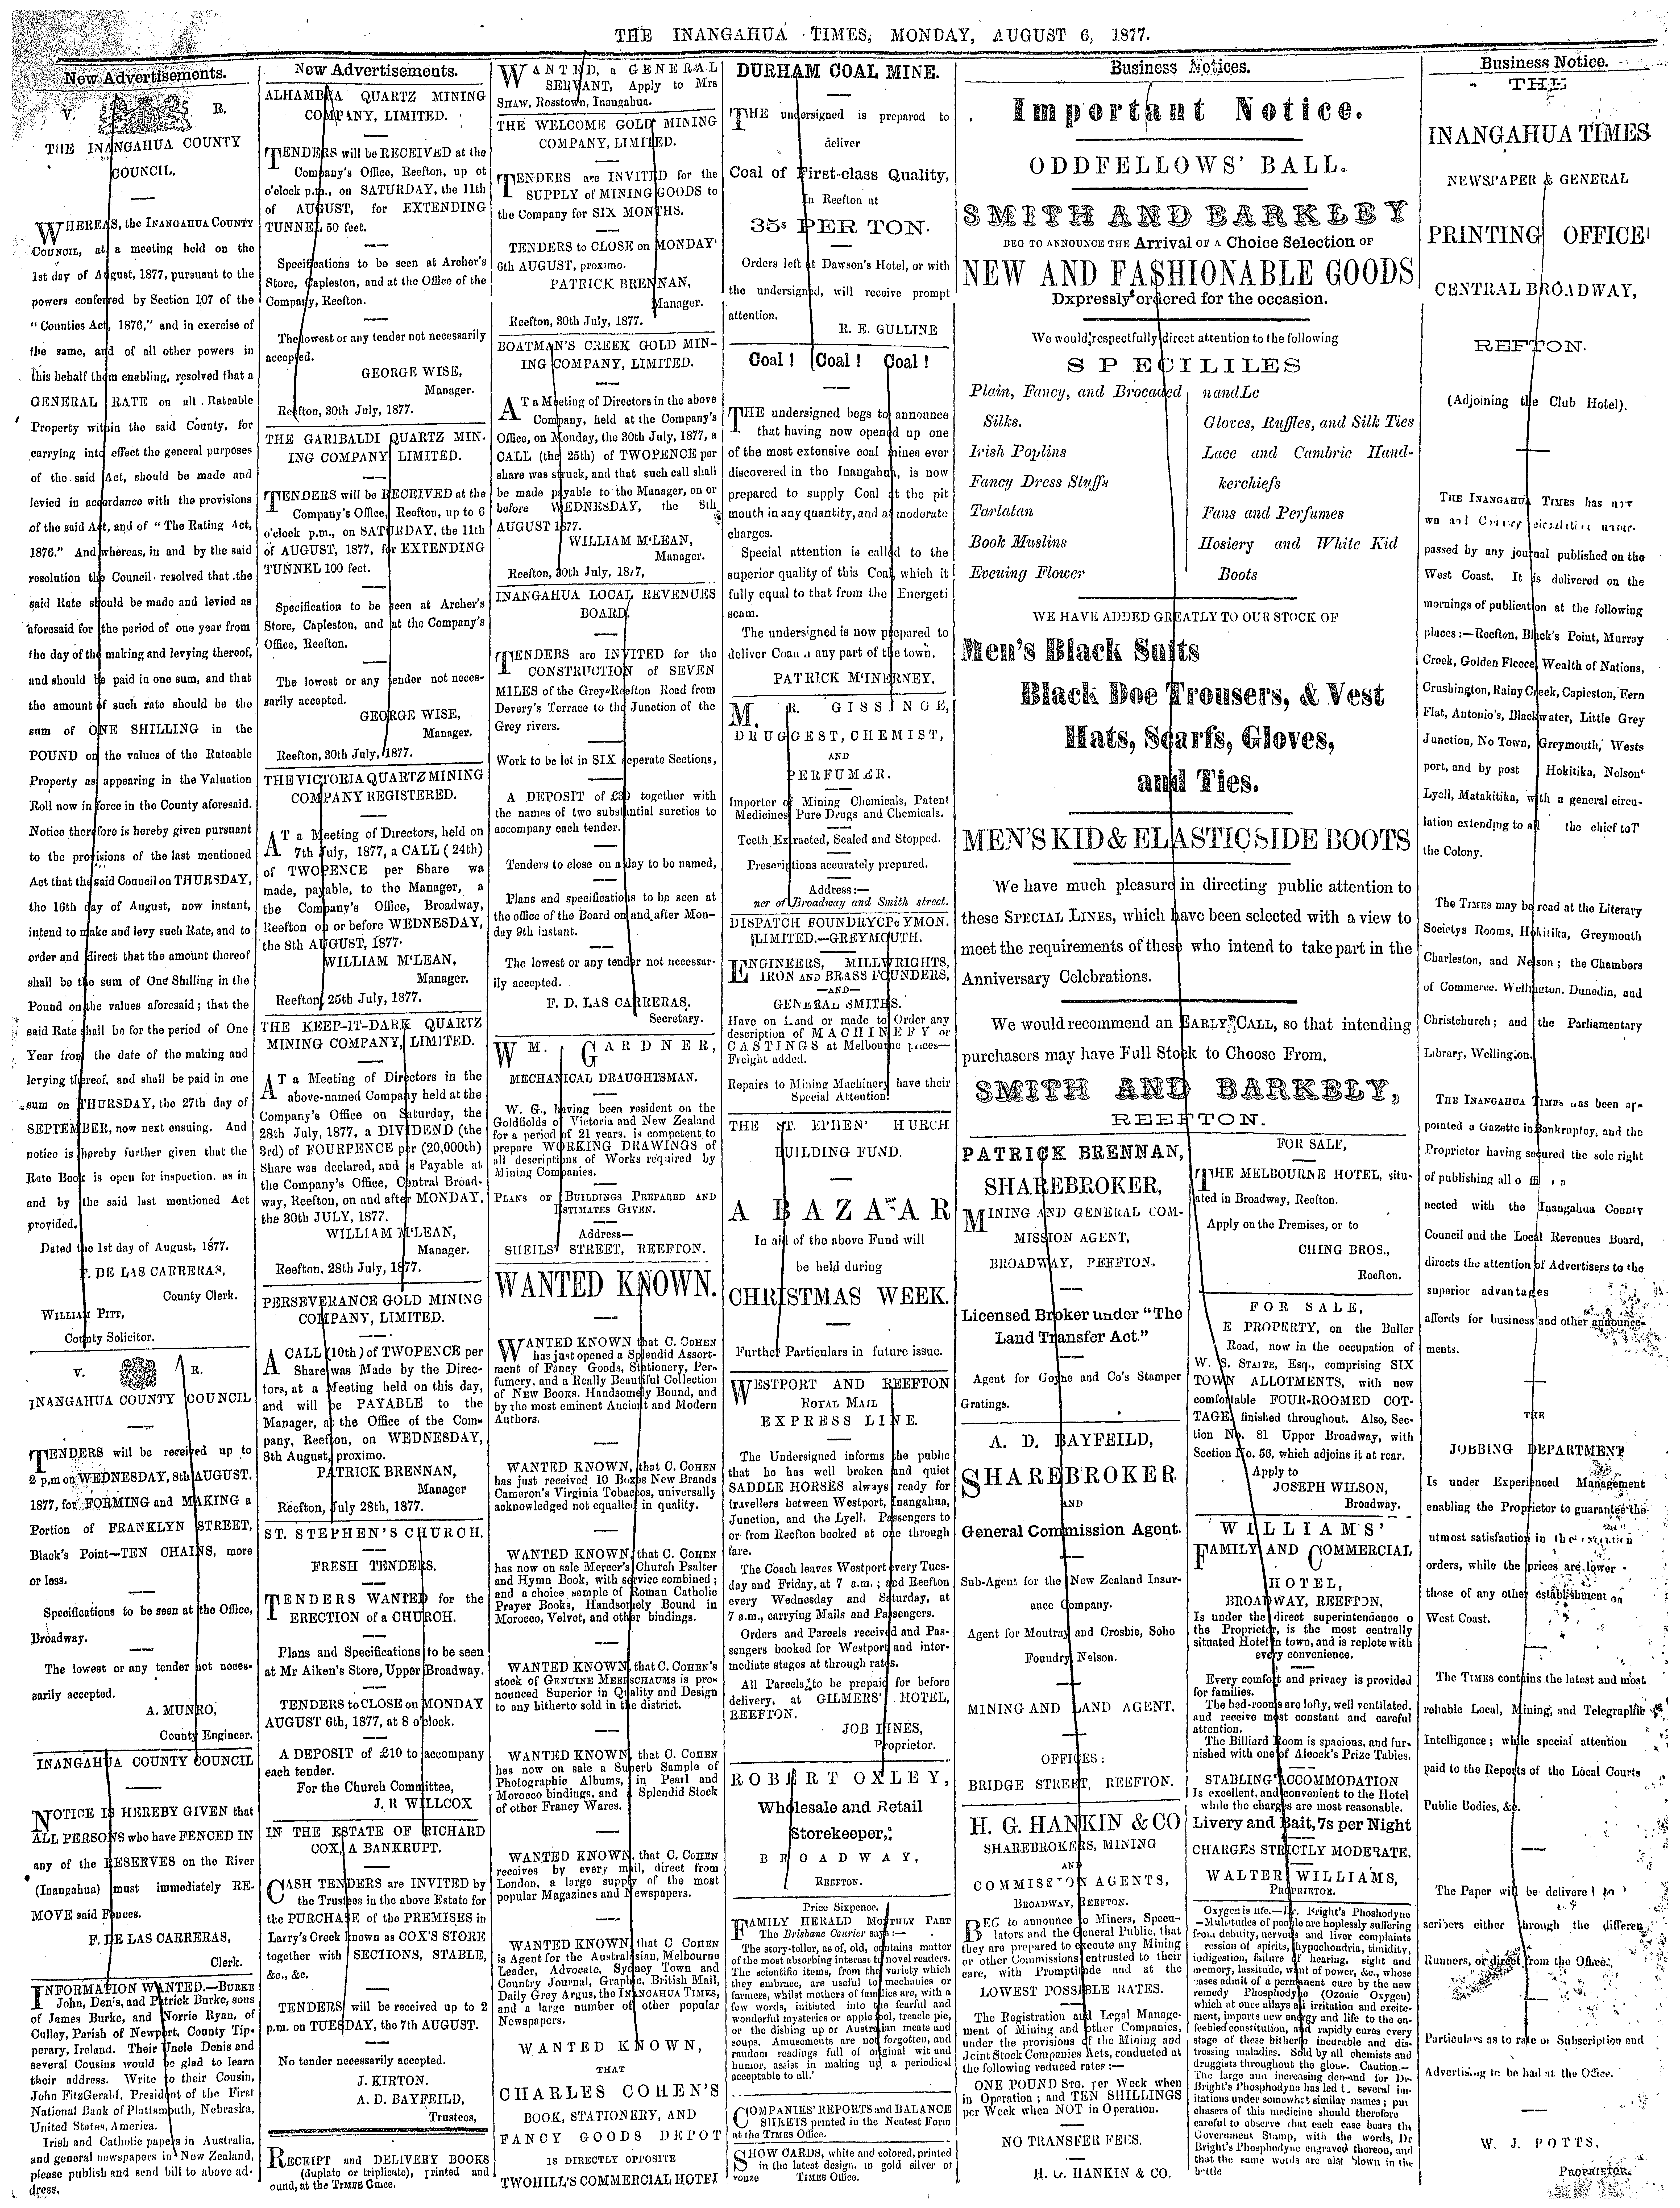 THE INANGAHUA TIMES, MONDAY, AUGUST 6, 1877.
New Advertisements.
V. R.
THE INANGAHUA COUNTY
COUNCIL.
WHEREAS, the INANGAHUA COUNTY
COUNCIL, at a meeting held on the
1st day of August, 1877, pursuant to the
powers conferred by Section 107 of the
"Counties Act, 1876," and in exercise of
the same, and of all other powers in
this behalf them enabling, resolved that a
GENERAL RATE on all Rateable
Property within the said County, for
carrying into effect the general purposes
of the said Act, should be made and
levied in accordance with the provisions
of the said Act, and of "The Rating Act,
1876." And whereas, in and by the said
resolution the Council resolved that the
said Rate should be made and levied as
aforesaid for the period of one year from
the day of the making and levying thereof,
and should be paid in one sum, and that
the amount of such rate should be the
sum of ONE SHILLING in the
POUND on the values of the Rateable
Property as appearing in the Valuation
Roll now in force in the County aforesaid.
Notice therefore is hereby given pursuant
to the provisions of the last mentioned
Act that the said Council on THURSDAY,
the 16th day of August, now instant,
intend to make and levy such Rate, and to
order and direct that the amount thereof
shall be the sum of One Shilling in the
Pound on the values aforesaid; that the
said Rate shall be for the period of One
Year from the date of the making and
levying thereof, and shall be paid in one
sum on THURSDAY, the 27th day of
SEPTEMBER, now next ensuing. And
notice is hereby further given that the
Rate Book is open for inspection, as in
and by the said last mentioned Act
provided.
Dated the 1st day of August, 1877.
F. DE LAS CARRERAS,
County Clerk.
WILLIAM PITT,
County Solicitor.
V. R.
INANGAHUA COUNTY COUNCIL
TENDERS will be received up to
2 p.m on WEDNESDAY, 8th AUGUST,
1877, for FORMING and MAKING a
Portion of FRANKLYN STREET,
Black's Point—TEN CHAINS, more
or less.
Specifications to be seen at the Office,
Broadway.
The lowest or any tender not neces-
sarily accepted.
A. MUNRO,
County Engineer.
INANGAHUA COUNTY COUNCIL
NOTICE IS HEREBY GIVEN that
ALL PERSONS who have FENCED IN
any of the RESERVES on the River
(Inangahua) must immediately RE-
MOVE said Fences.
F. DE LAS CARRERAS,
Clerk.
INFORMATION WANTED.—BURKE
John, Den's, and Patrick Burke, sons
of James Burke, and Norrie Ryan, of
Culley, Parish of Newport, County Tip-
perary, Ireland. Their Uncle Denis and
several Cousins would be glad to learn
their address. Write to their Cousin,
John FitzGerald, President of the First
National Bank of Plattsmouth, Nebraska,
United States, America.
Irish and Catholic papers in Australia,
and general newspapers in New Zealand,
please publish and send bill to above ad-
dress.
New Advertisements.
ALHAMBRA QUARTZ MINING
COMPANY, LIMITED.
TENDERS will be RECEIVED at the
Company's Office, Reefton, up ot
o'clock p.m., on SATURDAY, the 11th
of AUGUST, for EXTENDING
TUNNEL 50 feet.
Specifications to be seen at Archer's
Store, Capleston, and at the Office of the
Company, Reefton.
The lowest or any tender not necessarily
accepted.
GEORGE WISE,
Manager.
Reefton, 30th July, 1877.
THE GARIBALDI QUARTZ MIN-
ING COMPANY LIMITED.
TENDERS will be RECEIVED at the
Company's Office, Reefton, up to 6
o'clock p.m., on SATURDAY, the 11th
of AUGUST, 1877, for EXTENDING
TUNNEL 100 feet.
Specification to be seen at Archer's
Store, Capleston, and at the Company's
Office, Reefton.
The lowest or any tender not neces-
sarily accepted.
GEORGE WISE,
Manager.
Reefton, 30th July, 1877.
THE VICTORIA QUARTZ MINING
COMPANY REGISTERED.
AT a Meeting of Directors, held on
7th July, 1877, a CALL (24th)
of TWOPENCE per Share wa
made, payable, to the Manager, a
the Company's Office, Broadway,
Reefton on or before WEDNESDAY,
the 8th AUGUST, 1877.
WILLIAM M'LEAN,
Manager.
Reefton, 25th July, 1877.
THE KEEP-IT-DARK QUARTZ
MINING COMPANY, LIMITED.
AT a Meeting of Directors in the
above-named Company held at the
Company's Office on Saturday, the
28th July, 1877, a DIVIDEND (the
3rd) of FOURPENCE per (20,000th)
Share was declared, and is Payable at
the Company's Office, Central Broad-
way, Reefton, on and after MONDAY,
the 30th JULY, 1877.
WILLIAM M'LEAN,
Manager.
Reefton, 28th July, 1877.
PERSEVERANCE GOLD MINING
COMPANY, LIMITED.
A CALL (10th) of TWOPENCE per
Share was Made by the Direc-
tors, at a Meeting held on this day,
and will be PAYABLE to the
Manager, at the Office of the Com-
pany, Reefton, on WEDNESDAY,
8th August, proximo.
PATRICK BRENNAN,
Manager
Reefton, July 28th, 1877.
ST. STEPHEN'S CHURCH.
FRESH TENDERS.
TENDERS WANTED for the
ERECTION of a CHURCH.
Plans and Specifications to be seen
at Mr Aiken's Store, Upper Broadway.
TENDERS to CLOSE on MONDAY
AUGUST 6th, 1877, at 8 o'clock.
A DEPOSIT of £10 to accompany
each tender.
For the Church Committee,
J. R WILLCOX
IN THE ESTATE OF RICHARD
COX, A BANKRUPT.
CASH TENDERS are INVITED by
the Trustees in the above Estate for
the PURCHASE of the PREMISES in
Larry's Creek known as COX'S STORE
together with SECTIONS, STABLE,
&c., &c.
TENDERS will be received up to 2
p.m. on TUESDAY, the 7th AUGUST.
No tender necessarily accepted.
J. KIRTON.
A. D. BAYFEILD,
Trustees,
RECEIPT and DELIVERY BOOKS
(duplate or triplicate), printed and
ound, at the TIMES Office.
WANTED, a GENERAL
SERVANT, Apply to Mrs
SHAW, Rosstown, Inangahua.
THE WELCOME GOLD MINING
COMPANY, LIMITED.
TENDERS are INVITED for the
SUPPLY of MINING GOODS to
the Company for SIX MONTHS.
TENDERS to CLOSE on MONDAY'
6th AUGUST, proximo.
PATRICK BRENNAN,
Manager.
Reefton, 30th July, 1877.
BOATMAN'S CREEK GOLD MIN-
ING COMPANY, LIMITED.
AT a Meeting of Directors in the above
Company, held at the Company's
Office, on Monday, the 30th July, 1877, a
CALL (the 25th) of TWOPENCE per
share was struck, and that such call shall
be made payable to the Manager, on or
before WEDNESDAY, the 8th
AUGUST 1877.
WILLIAM M'LEAN,
Manager.
Reefton, 30th July, 1877,
INANGAHUA LOCAL REVENUES
BOARD.
TENDERS are INVITED for the
CONSTRUCTION of SEVEN
MILES of the Grey-Reefton Road from
Devery's Terrace to the Junction of the
Grey rivers.
Work to be let in SIX seperate Sections,
A DEPOSIT of together with
the names of two substantial sureties to
accompany each tender.
Tenders to close on a day to be named,
Plans and specifications to be seen at
the office of the Board on and after Mon-
day 9th instant.
The lowest or any tender not necessar-
ily accepted.
F. D. LAS CARRERAS.
Secretary.
WM. GARDNER,
MECHANICAL DRAUGHTSMAN.
W. G., having been resident on the
Goldfields of Victoria and New Zealand
for a period of 21 years, is competent to
prepare WORKING DRAWINGS of
all descriptions of Works required by
Mining Companies.
PLANS OF BUILDINGS PREPARED AND
ESTIMATES GIVEN.
Address—
SHEILS' STREET, REEFTON.
WANTED KNOWN.
WANTED KNOWN that C. COHEN
has just opened a Splendid Assort-
ment of Fancy Goods, Stationery, Per-
fumery, and a Really Beautiful Collection
of NEW BOOKS, Handsomely Bound, and
by the most eminent Ancient and Modern
Authors.
WANTED KNOWN, that C. COHEN
has just received 10 Boxes New Brands
Cameron's Virginia Tobaccos, universally
acknowledged not equalled in quality.
WANTED KNOWN, that C. COHEN
has now on sale Mercer's Church Psalter
and Hymn Book, with service combined;
and a choice sample of Roman Catholic
Prayer Books, Handsomely Bound in
Morocco, Velvet, and other bindings.
WANTED KNOWN, that C. COHEN'S
stock of GENUINE MEERSCHAUMS is pro-
nounced Superior in Quality and Design
to any hitherto sold in the district.
WANTED KNOWN, that C. COHEN
has now on sale a Superb Sample of
Photographic Albums, in Pearl and
Morocco bindings, and a Splendid Stock
of other Francy Wares.
WANTED KNOWN, that C. COHEN
receives by every mail, direct from
London, a large supply of the most
popular Magazines and Newspapers.
WANTED KNOWN, that C COHEN
is Agent for the Australasian, Melbourne
Leader, Advocate, Sydney Town and
Country Journal, Graphic, British Mail,
Daily Grey Argus, the INANGAHUA TIMES,
and a large number of other popular
Newspapers.
WANTED KNOWN,
THAT
CHARLES COHEN'S
BOOK, STATIONERY, AND
FANCY GOODS DEPOT
IS DIRECTLY OPPOSITE
TWOHILL'S COMMERCIAL HOTEL
DURHAM COAL MINE.
THE undersigned is prepared to
deliver
Coal of First-class Quality,
In Reefton at
35s PER TON.
Orders left at Dawson's Hotel, or with
the undersigned, will receive prompt
attention.
R. E. GULLINE
Coal! Coal! Coal!
THE undersigned begs to announce
that having now opened up one
of the most extensive coal mines ever
discovered in the Inangahua, is now
prepared to supply Coal at the pit
mouth in any quantity, and at moderate
charges.
Special attention is called to the
superior quality of this Coal, which it
fully equal to that from the Energeti
seam.
The undersigned is now prepared to
deliver Coal any part of the town.
PATRICK M'INERNEY.
M. R. GISSINGE,
DRUGGEST, CHEMIST,
AND
PERFUMER.
Importer of Mining Chemicals, Patent
Medicines Pure Drugs and Chemicals.
Teeth Extracted, Scaled and Stopped.
Prescriptions accurately prepared.
Address:—
ner of Broadway and Smith street.
DISPATCH FOUNDRY
LIMITED.—GREYMOUTH.
ENGINEERS, MILLWRIGHTS,
IRON AND BRASS FOUNDERS,
—AND—
GENERAL SMITHS.
Have on Land or made to Order any
description of MACHINERY or
CASTINGS at Melbourne prices—
Freight added.
Repairs to Mining Machinery have their
Special Attention.
THE ST. EPHEN' HURCH
BUILDING FUND.
A BAZAAR
In aid of the above Fund will
be held during
CHRISTMAS WEEK.
Further Particulars in future issue.
WESTPORT AND REEFTON
ROYAL MAIL
EXPRESS LINE.
The Undersigned informs the public
that he has well broken and quiet
SADDLE HORSES always ready for
travellers between Westport, Inangahua,
Junction, and the Lyell. Passengers to
or from Reefton booked at one through
fare.
The Coach leaves Westport every Tues-
day and Friday, at 7 a.m.; and Reefton
every Wednesday and Saturday, at
7 a.m., carrying Mails and Passengers.
Orders and Parcels received and Pas-
sengers booked for Westport and inter-
mediate stages at through rates.
All Parcels to be prepaid for before
delivery, at GILMERS' HOTEL,
REEFTON.
JOB LINES,
Proprietor.
ROBERT OXLEY,
Wholesale and Retail
Storekeeper,
BROADWAY,
REEFTON.
Price Sixpence.
FAMILY HERALD MONTHLY PART
The Brisbane Courier says:—
The story-teller, as of, old, contains matter
of the most absorbing interest to novel readers.
The scientific items, from the variety which
they embrace, are useful to mechanics or
farmers, whilst mothers of families are, with a
few words, initiated into the fearful and
wonderful mysteries or apple fool, treacle pie,
or the dishing up of Australian meats and
soups. Amusements are not forgotten, and
random readings full of original wit and
humor, assist in making up a periodical
acceptable to all.'
COMPANIES' REPORTS and BALANCE
SHEETS printed in the Neatest Form
at the TIMES Office.
SHOW CARDS, white and colored, printed
in the latest design, in gold silver or
ronze TIMES Office.
Business Notices.
Important Notice.
ODDFELLOWS' BALL.
SMITH AND BARKLEY
BEG TO ANNOUNCE THE Arrival OF A Choice Selection OF
NEW AND FASHIONABLE GOODS
Dxpressly ordered for the occasion.
We would respectfully direct attention to the following
SPECILILES
Plain, Fancy, and Brocaded
Silks.
Irish Poplins
Fancy Dress Stuffs
Tarlatan
Book Muslins
Eveuing Flower
nandLc
Gloves, Ruffles, and Silk Ties
Lace and Cambric Hand-
kerchiefs
Fans and Perfumes
Hosiery and White Kid
Boots
WE HAVE ADDED GREATLY TO OUR STOCK OF
Men's Black Suits
Black Doe Trousers, & Vest
Hats, Scarfs, Gloves,
and Ties.
MEN'S KID & ELASTIC SIDE BOOTS
We have much pleasure in directing public attention to
these SPECIAL LINES, which have been selected with a view to
meet the requirements of these who intend to take part in the
Anniversary Celebrations.
We would recommend an EARLY CALL, so that intending
purchasers may have Full Stock to Choose From.
SMITH AND BARKELY,
REEFTON.
PATRICK BRENNAN,
SHAREBROKER,
MINING AND GENERAL COM-
MISSION AGENT,
BROADWAY, REEFTON.
Licensed Broker under "The
Land Transfer Act."
Agent for Goyne and Co's Stamper
Gratings.
A. D. BAYFEILD,
SHAREBROKER
AND
General Commission Agent.
Sub-Agent for the New Zealand Insur-
ance Company.
Agent for Moutray and Crosbie, Soho
Foundry, Nelson.
MINING AND LAND AGENT.
OFFICES:
BRIDGE STREET, REEFTON.
H. G. HANKIN & CO
SHAREBROKERS, MINING
AND
COMMISSION AGENTS,
BROADWAY, REEFTON.
BEG to announce to Miners, Specu-
lators and the General Public, that
they are prepared to execute any Mining
or other Commissions entrusted to their
care, with Promptitude and at the
LOWEST POSSIBLE RATES.
The Registration and Legal Manage-
ment of Mining and other Companies,
under the provisions of the Mining and
Joint Stock Companies Acts, conducted at
the following reduced rates:—
ONE POUND STG. per Week when
in Operation; and TEN SHILLINGS
per Week when NOT in Operation.
NO TRANSFER FEES.
H. G. HANKIN & CO.
FOR SALE,
THE MELBOURNE HOTEL, situ-
ated in Broadway, Reefton.
Apply on the Premises, or to
CHING BROS.,
Reefton.
FOR SALE,
E PROPERTY, on the Buller
Road, now in the occupation of
W. S. STAITE, Esq., comprising SIX
TOWN ALLOTMENTS, with new
comfortable FOUR-ROOMED COT-
TAGE, finished throughout. Also, Sec-
tion No. 81 Upper Broadway, with
Section No. 56, which adjoins it at rear.
Apply to
JOSEPH WILSON,
Broadway.
WILLIAMS'
FAMILY AND COMMERCIAL
HOTEL,
BROADWAY, REEFTON.
Is under the direct superintendence o
the Proprietor, is the most centrally
situated Hotel in town, and is replete with
every convenience.
Every comfort and privacy is provided
for families.
The bed-rooms are lofty, well ventilated,
and receive most constant and careful
attention.
The Billiard Room is spacious, and fur-
nished with one of Alcock's Prize Tables.
STABLING ACCOMMODATION
Is excellent, and convenient to the Hotel
while the charges are most reasonable.
Livery and Bait, 7s per Night
CHARGES STRICTLY MODERATE.
WALTER WILLIAMS,
PROPRIETOR.
Oxygen is life.—Dr. Bright's Phoshodyne
—Multitudes of people are hoplessly suffering
from debility, nervous and liver complaints
ression of spirits, hypochondria, timidity,
indigestion, failure of hearing, sight and
memory, lassitude, want of power, &c., whose
cases admit of a permanent cure by the new
remedy Phosphodyne (Ozonic Oxygen)
which at once allays all irritation and excite-
ment, imparts new energy and life to the en-
feebled constitution, and rapidly cures every
stage of these hitherto incurable and dis-
tressing maladies. Sold by all chemists and
druggists throughout the globe. Caution.—
The large and increasing demand for Dr
Bright's Phosphodyne has led t. several im-
itations under somewhat similar names; pur
chasers of this medicine should therefore
careful to observe that each case bears the
Government Stamp, with the words, Dr
Bright's Phosphodyne engraved thereon, and
that the same words are also blown in the
bottle
Business Notice.
THE
INANGAHUA TIMES
NEWSPAPER & GENERAL
PRINTING OFFICE
CENTRAL BROADWAY,
REFTON.
(Adjoining the Club Hotel).
THE INANGAHUA TIMES has now
passed by any journal published on the
West Coast. It is delivered on the
mornings of publication at the following
places:—Reefton, Black's Point, Murray
Creek, Golden Fleece, Wealth of Nations,
Crushington, Rainy Creek, Capleston, Fern
Flat, Antonio's, Blackwater, Little Grey
Junction, No Town, Greymouth, Wests
port, and by post Hokitika, Nelson
Lyell, Matakitika, with a general circu-
lation extending to all the chief toT
the Colony.
The TIMES may be read at the Literary
Societys Rooms, Hokitika, Greymouth
Charleston, and Nelson; the Chambers
of Commerce. Wellington. Dunedin, and
Christchurch; and the Parliamentary
Library, Wellington.
THE INANGAHUA TIMES has been ap-
pointed a Gazette in Bankruptcy, and the
Proprietor having secured the sole right
of publishing all
nected with the Inangahua County
Council and the Local Revenues Board,
directs the attention of Advertisers to the
superior advantages
affords for business and other announce-
ments.
THE
JOBBING DEPARTMENT
Is under Experienced Management
enabling the Proprietor to guarantee the
utmost satisfaction in the execution
orders, while the prices are lower
those of any other establishment on
West Coast.
The TIMES contains the latest and most
reliable Local, Mining, and Telegraphic
Intelligence; while special attention
paid to the Reports of the Local Courts
Public Bodies, &c.
The Paper will be delivered to
scribers either through the differen
Runners, or direct from the Office.
Particulars as to rate of Subscription and
Advertising to be had at the Office.
W. J. POTTS,
PROPRIETOR.